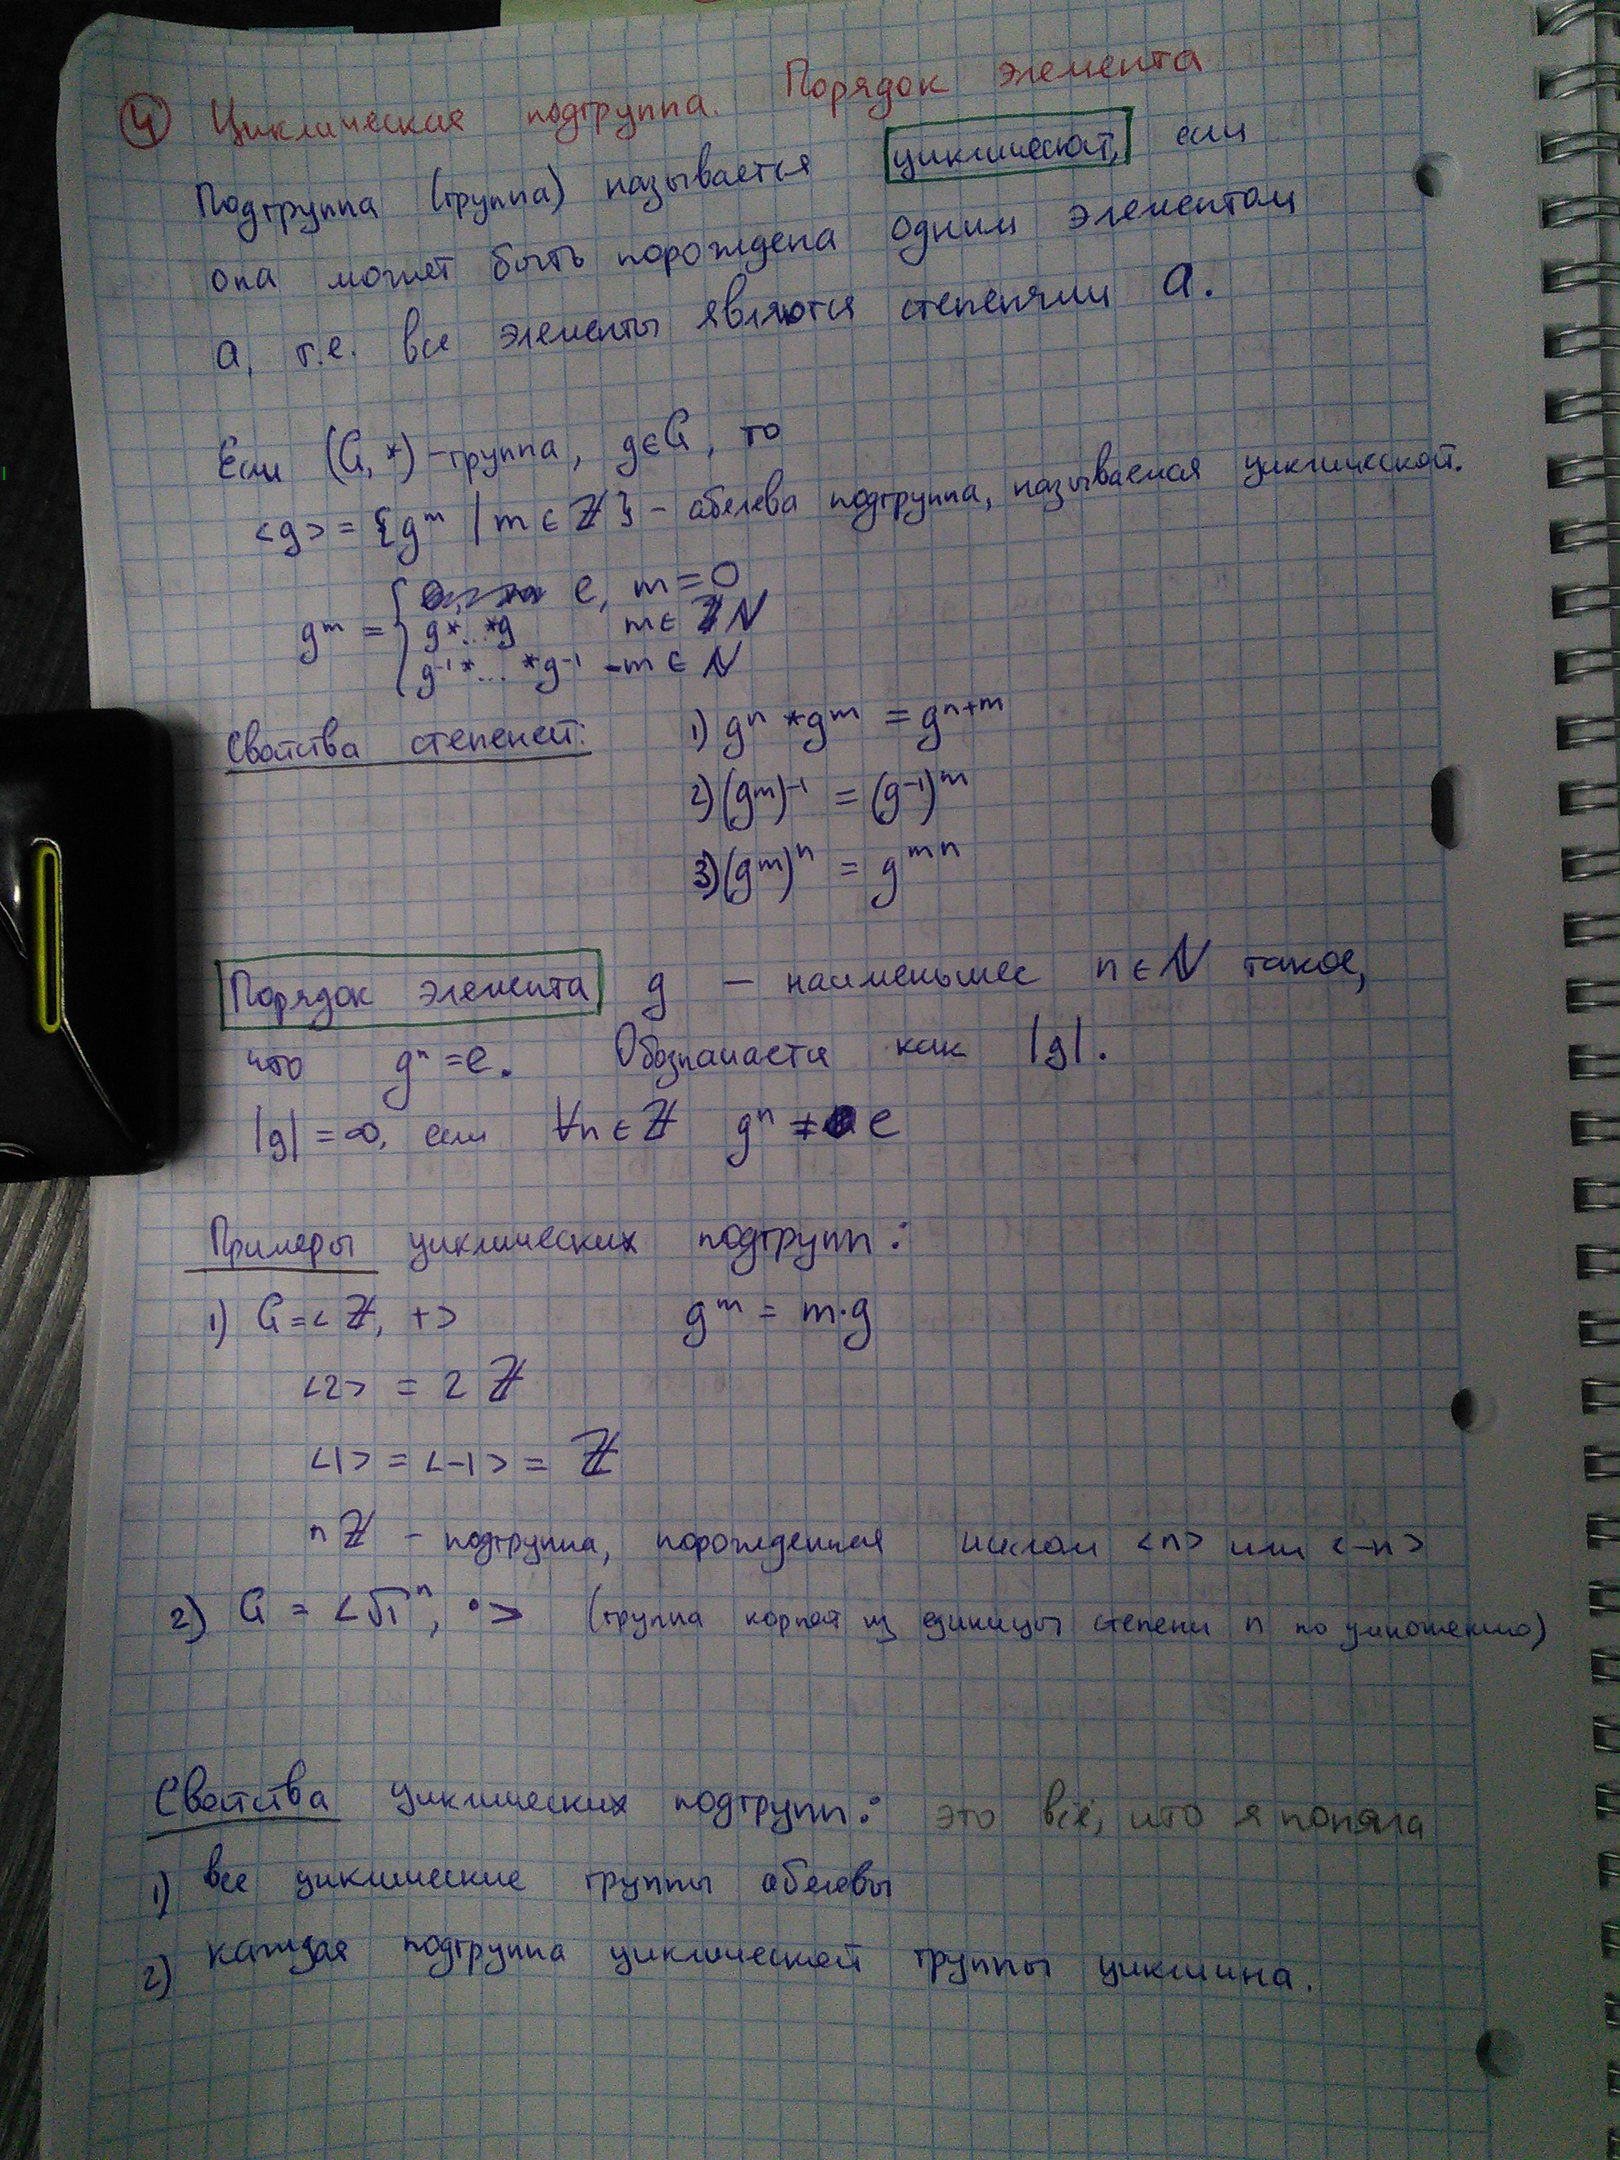 4 Циклическая подгруппа. Порядок элемента
Подгруппа (группа) называется циклической, если
она может быть порождена одним элементом
a, т.е. все элементы являются степенями a.
Если (G, *) - группа, g∈G, то
<g> = {g^m | m ∈ ℤ} - абелева подгруппа, называемая циклической.
g^m = { e, m = 0
g*...*g m ∈ ℕ
g^-1*...*g^-1 -m ∈ ℕ
Свойства степеней: 1) g^n * g^m = g^n+m
2) (g^m)^-1 = (g^-1)^m
3) (g^m)^n = g^mn
Порядок элемента g — наименьшее n ∈ ℕ такое,
что g^n = e. Обозначается как |g|.
|g| = ∞, если ∀n ∈ ℤ g^n ≠ e
Примеры циклических подгрупп:
1) G = <ℤ, +> g^m = m·g
<2> = 2ℤ
<1> = <-1> = ℤ
nℤ - подгруппа, порожденная числом <n> или <-n>
2) G = <√1^n, ·> (группа корней из единицы степени n по умножению)
Свойства циклических подгрупп: это всё, что я поняла
1) все циклические группы абелевы
2) каждая подгруппа циклической группы циклична.